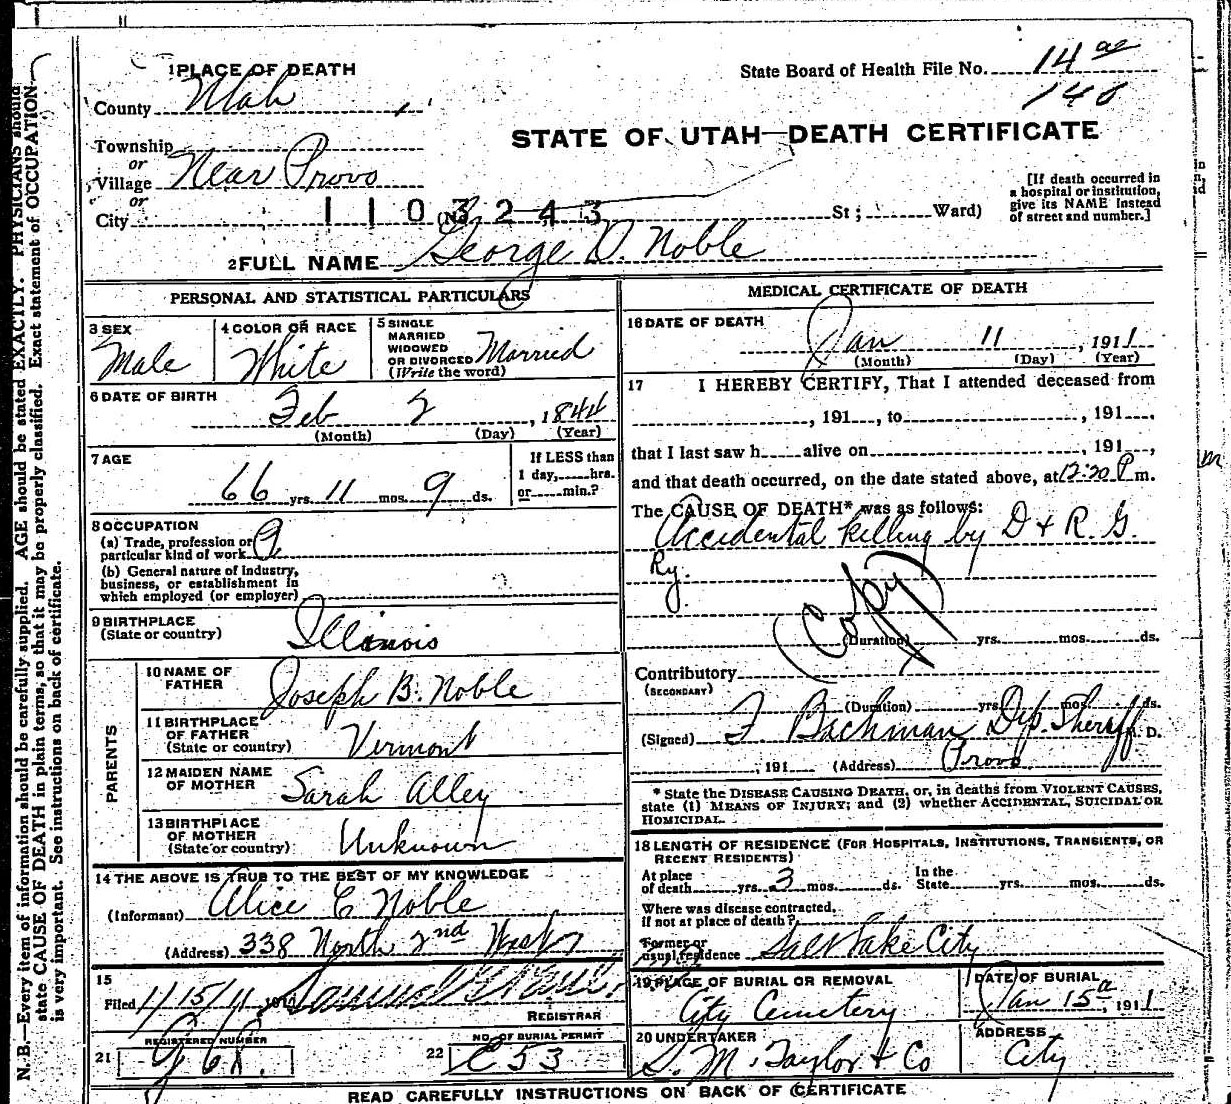 N. B.—Every item of information should be carefully supplied. AGE should be stated EXACTLY. PHYSICIANS should
state CAUSE OF DEATH in plain terms, so that it may be properly classified. Exact statement of OCCUPATION
is very important. See instructions on back of certificate.
1 PLACE OF DEATH
State Board of Health File No. 14
County Utah
STATE OF UTAH—DEATH CERTIFICATE
Township
or
Village Near Provo
or
City
1103243
(No. St; Ward)
[If death occurred in
a hospital or institution,
give its NAME instead
of street and number.]
2 FULL NAME George D. Noble
PERSONAL AND STATISTICAL PARTICULARS
3 SEX
Male
4 COLOR OR RACE
White
5 SINGLE
MARRIED
WIDOWED
OR DIVORCED Married
(Write the word)
6 DATE OF BIRTH
Feb 2, 1844
(Month) (Day) (Year)
7 AGE
66 yrs. 11 mos. 9 ds.
If LESS than
1 day, hrs.
or min.?
8 OCCUPATION
(a) Trade, profession or
particular kind of work
(b) General nature of industry,
business, or establishment in
which employed (or employer)
9 BIRTHPLACE
(State or country) Illinois
PARENTS
10 NAME OF
FATHER Joseph B. Noble
11 BIRTHPLACE
OF FATHER
(State or country) Vermont
12 MAIDEN NAME
OF MOTHER Sarah Alley
13 BIRTHPLACE
OF MOTHER
(State or country) Unknown
14 THE ABOVE IS TRUE TO THE BEST OF MY KNOWLEDGE
(Informant) Alice E Noble
(Address) 338 North 2nd West
15
Filed 1/15/11 191
REGISTRAR
21 REGISTERED NUMBER
22 NO. OF BURIAL PERMIT
C 53
MEDICAL CERTIFICATE OF DEATH
16 DATE OF DEATH
Jan 11, 1911
(Month) (Day) (Year)
17 I HEREBY CERTIFY, That I attended deceased from
, 191 , to , 191 ,
that I last saw h alive on , 191 ,
and that death occurred, on the date stated above, at 12:20 P m.
The CAUSE OF DEATH* was as follows:
Accidental killing by D & R. G.
Ry.
(Copy)
(Duration) yrs. mos. ds.
Contributory
(SECONDARY)
(Duration) yrs. mos. ds.
(Signed) F. Bachman Dep. Sheriff D.
, 191 (Address) Provo
* State the DISEASE CAUSING DEATH, or, in deaths from VIOLENT CAUSES,
state (1) MEANS OF INJURY; and (2) whether ACCIDENTAL, SUICIDAL OR
HOMICIDAL.
18 LENGTH OF RESIDENCE (FOR HOSPITALS, INSTITUTIONS, TRANSIENTS, OR
RECENT RESIDENTS)
At place
of death yrs. 3 mos. ds.
In the
State yrs. mos. ds.
Where was disease contracted,
if not at place of death?
Former or
usual residence Salt Lake City
19 PLACE OF BURIAL OR REMOVAL
City Cemetery
DATE OF BURIAL
Jan 15, 1911
20 UNDERTAKER
S. M. Taylor & Co
ADDRESS
City
READ CAREFULLY INSTRUCTIONS ON BACK OF CERTIFICATE